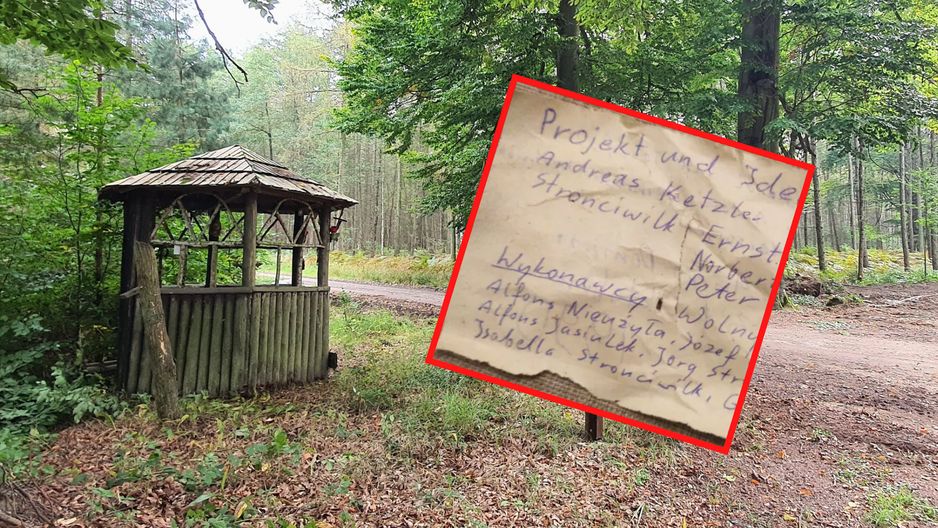 Projekt und Jde
Andreas Ketzler
Stronciwilk Ernst
Norber
Peter
Wykonawcy: Wolny
Alfons Nieużyła, Józef
Alfons Jasiulek, Jörg Str
Isabella Stronciwilk,